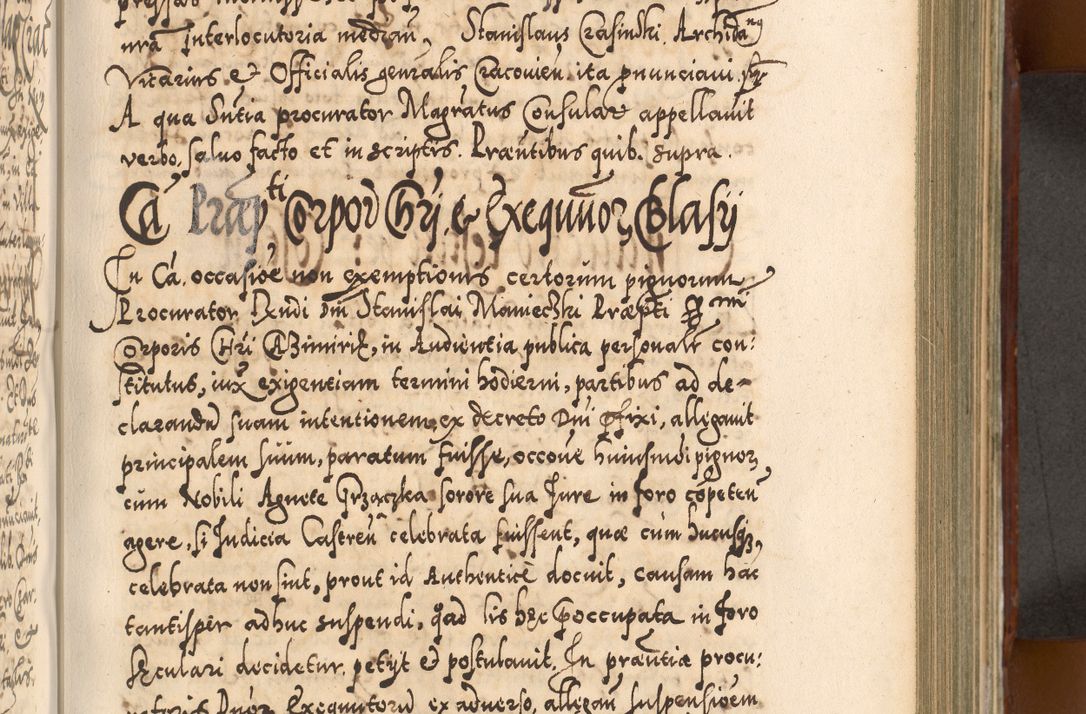 nrã Interlocutoria medïau, Stanislaus Crasinski Archida
Vicarius et Officialis genralis Cracovien. ita pnunciavi.
A qua Sntia procurator Magratus Consular appellavit
verbo, salvo facto et in scriptis. Præntibus quib. supra.
Ca Præpti Corpor Chri, et Exequutor Blasij
In Ca. occasiõe non exemptionis certorum pignorum
Procurator Rndi Dni Stanislai Manieczki Præpti
Corporis Chri Casimirie, in Audientia publica personalr con:
stitutus, iux exigentiam termini hodierni, partibus ad de-
clarandũ suam intentionem ex decreto Dni pfixi, allegavit
principalem suum, paratum fuisse, occõne huiusmdi pignor
cum Nobili Agnete Grzączka sorore sua Iure in foro cõpeten
agere, si Iudicia Castren celebrata fuissent, quæ cum hucusq,
celebrata non sint, prout id Authenticè docuit, causam hac
tantisper adhuc suspendi, qad lis hæc pœoccupata in foro
Seculari decidetur, petijt et postulavit. In præntia procu:
ratoris Dnor Exequutorũ ex adverso, allegan suspensioem